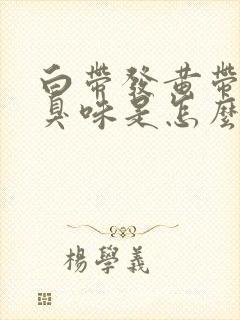 白帶發黃帶
臭味是怎麼
楊學義